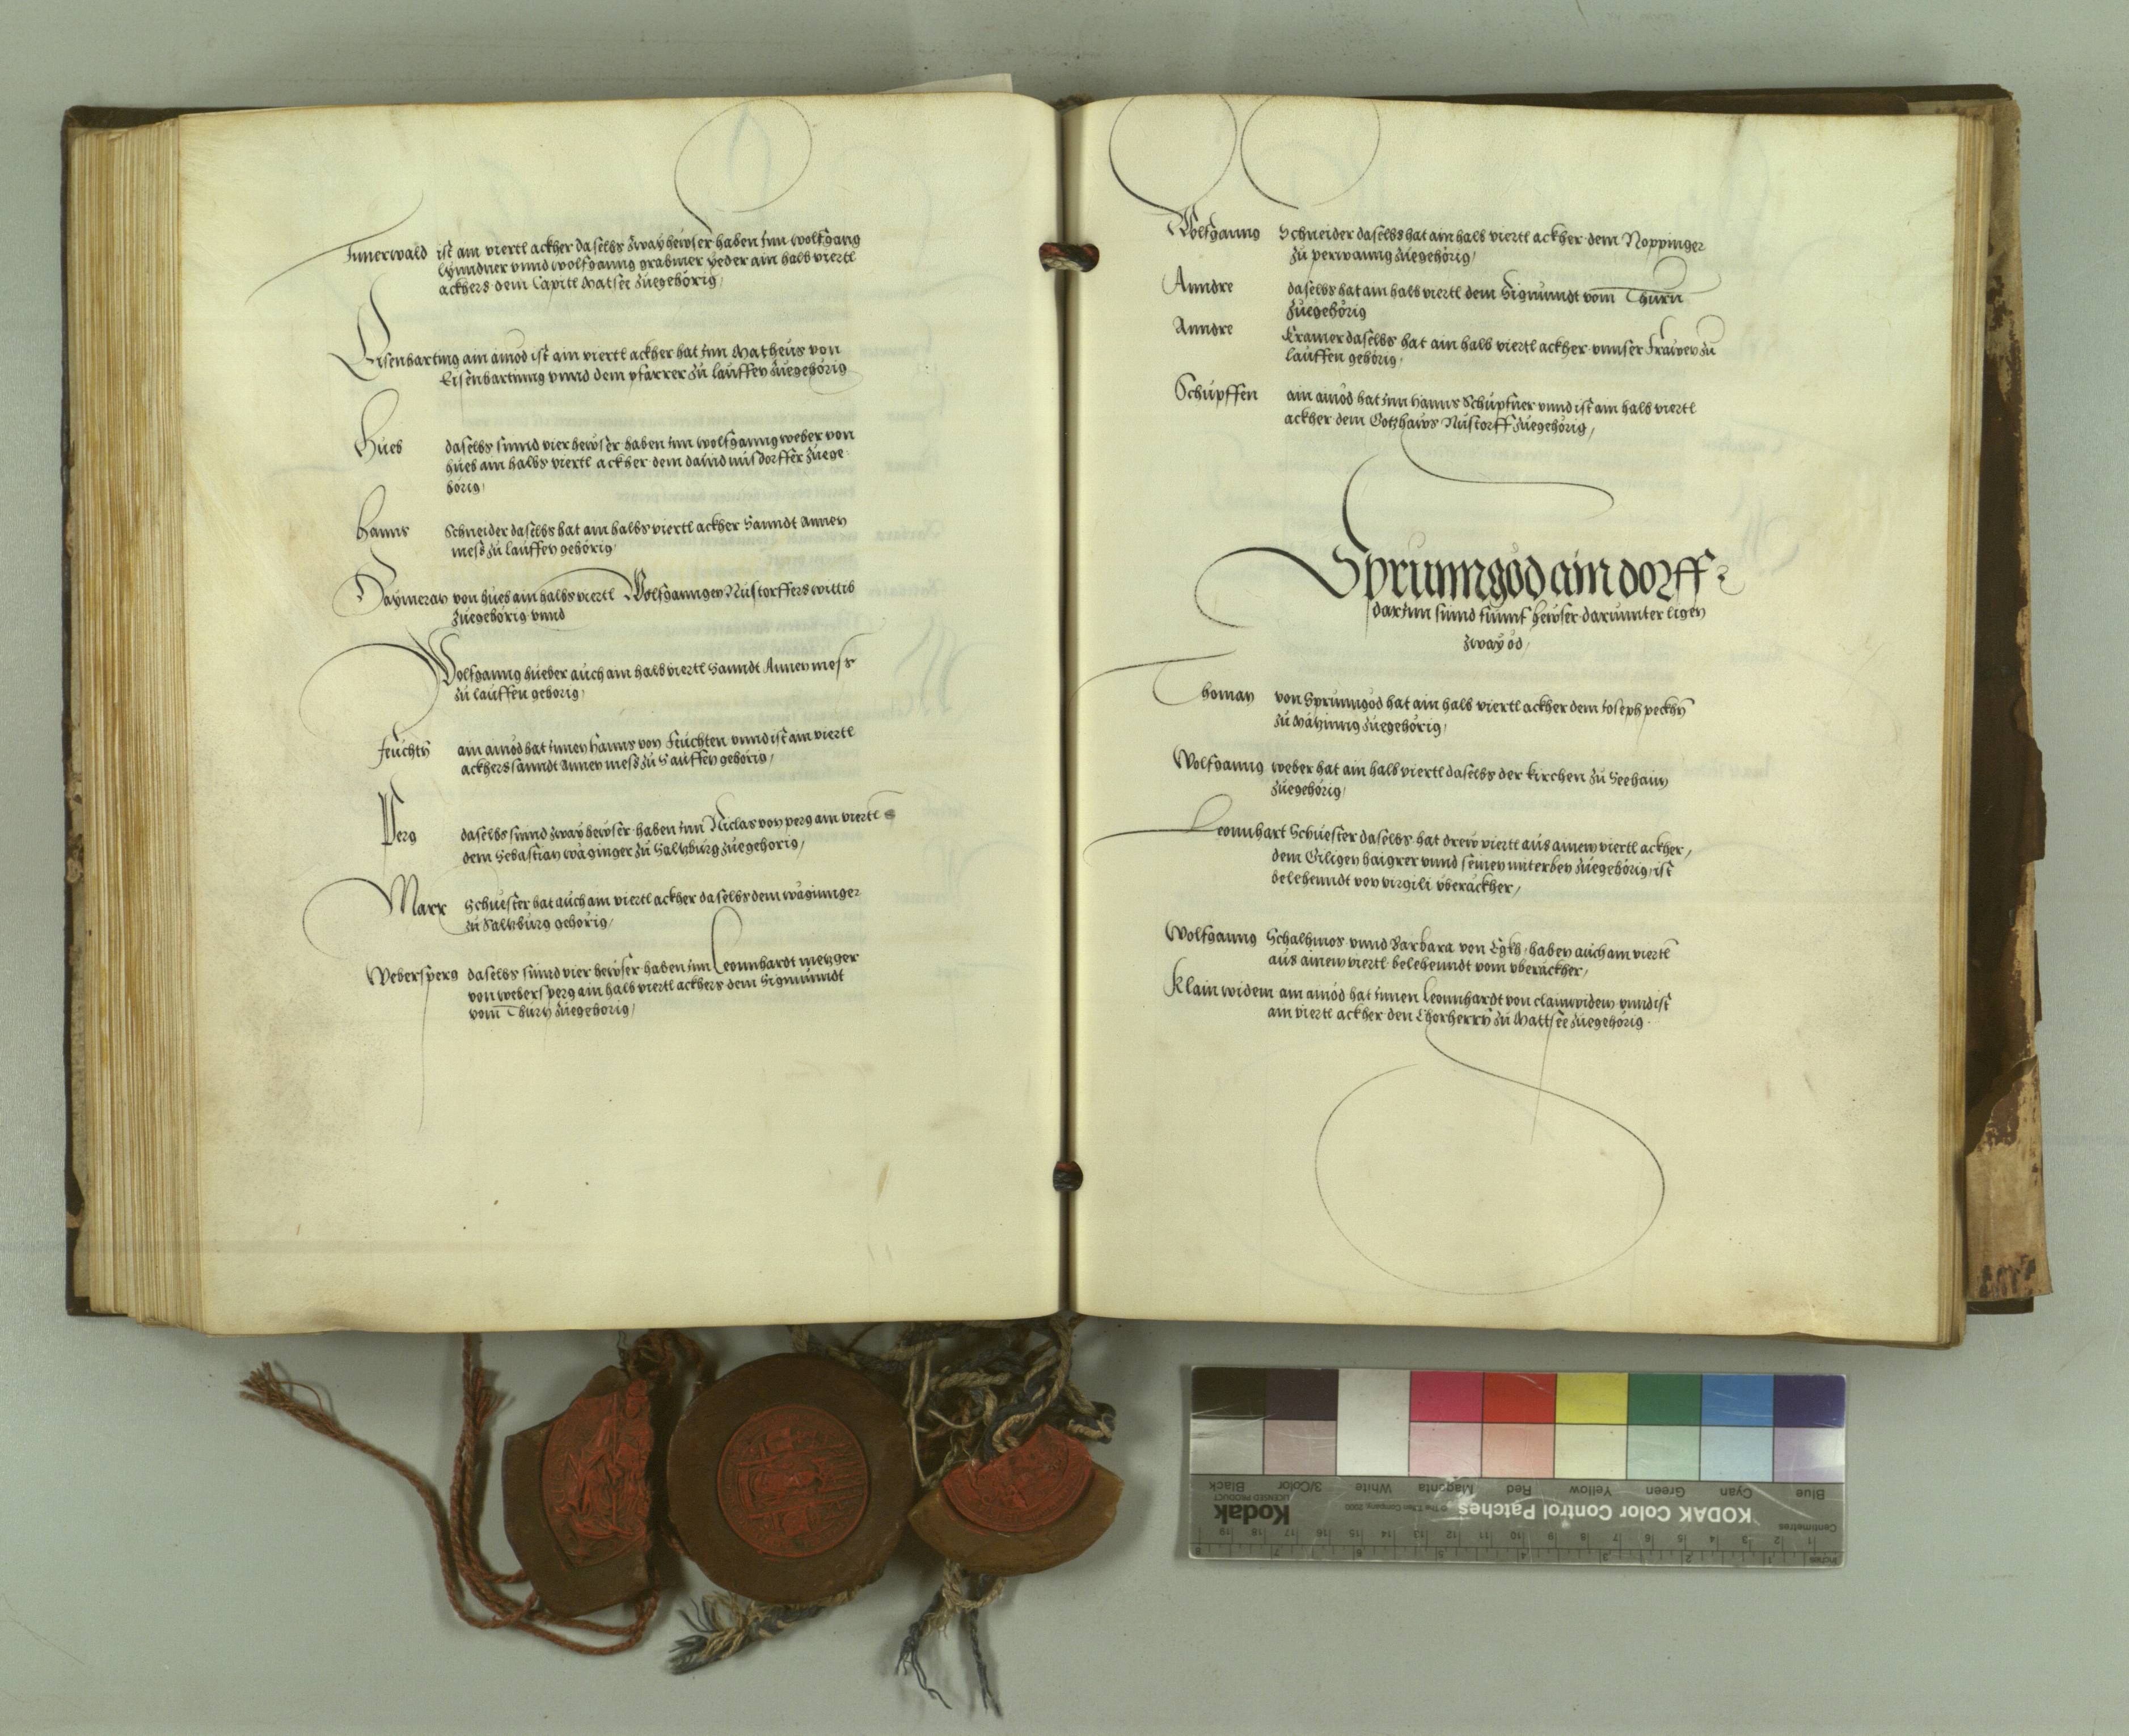 Innerwald ist ain viertl ackher daselbs zway hewser haben inn wolfgang
lynndner vnnd wolfganng grabmer yeder ain halb viertl
ackhers dem Capitl Matsee zuegehörig
Eisenharting ain ainöd ist ain viertl ackher hat inn Matheus von
Eisenhartnng vnnd dem pfarrer zu lauffen zuegehörig
Hueb daselbs sinnd vier hewser haben inn wolfganng weber von
hueb ain halbs viertl ackher dem dauid nusdorffer zuege
hörig
Hanns Schneider daselbs hat ain halbs viertl ackher Sanndt Annen
mess zu lauffen gehörig
Haymeran von hueb ain halbs viertl Wolfganngen Nustorffers wittib
zuegehörig vnnd
Wolfganng hueber auch ain halb viertl Sanndt Annen mess
zu lauffen gehörig
Feuchtn ain ainöd hat innen Hanns von Feuchten vnnd ist ain viertl
ackhers sanndt Annen mess zu Lauffen gehörig
Perg daselbs sinnd zway hewser haben inn Niclas von perg ain viertl
dem Sebastian wäginger zu Saltzburg zuegehörig
Marx Schuester hat auch ain viertl ackher daselbs dem wäginnger
zu Saltzburg gehörig
Webersperg daselbs sinnd vier hewser haben inn Leonnhardt metzger
von webersperg ain halb viertl ackhers dem Sigmunndt
vom Thurn zuegehörig
Wolfganng Schneider daselbs hat ain halb viertl ackher dem Noppinger
zu perwanng zuegehörig
Anndre daselbs hat ain halb viertl dem Sigmundt vom Thurn
zuegehörig
Anndre Cramer daselbs hat ain halb viertl ackher vnnser Frawen zu
lauffen gehörig
Schupffen ain ainöd hat inn Hanns Schupfner vnnd ist ain halb viertl
ackher dem Gotzhaws Nustorff zuegehörig
Sprunngöd ain dorff
darinn sinnd funnf hewser darunnter ligen
zway öd
Thoman von Sprunngöd hat ain halb viertl ackher dem Joseph peckhn
zu zuegehörig
Wolfganng weber hat ain halb viertl daselbs der kirchen zu Seehaim
zuegehörig
Leonnhart Schuester daselbs hat drew viertl aus ainem viertl ackher
dem Giligen haigrer vnnd seinen miterben zuegehörig ist
belehenndt von virgili vberackher
Wolfganng Schalhmos vnnd Barbara von Egkh haben auch ain viertl
aus ainem viertl belehenndt vom vberackher
Klainwidem ain ainöd hat innen Leonnhardt von clainwidem vnnd ist
ain viertl ackher den Chorherrn zu Mattsee zuegehörig
Blue Cyan Green Yellow Red Magenta White 3/Color Black
KODAK Color Control Patches © The Tiffen Company, 2000 Kodak LICENSED PRODUCT
Centimetres 1 2 3 4 5 6 7 8 9 10 11 12 13 14 15 16 17 18 19
Inches 1 2 3 4 5 6 7 8